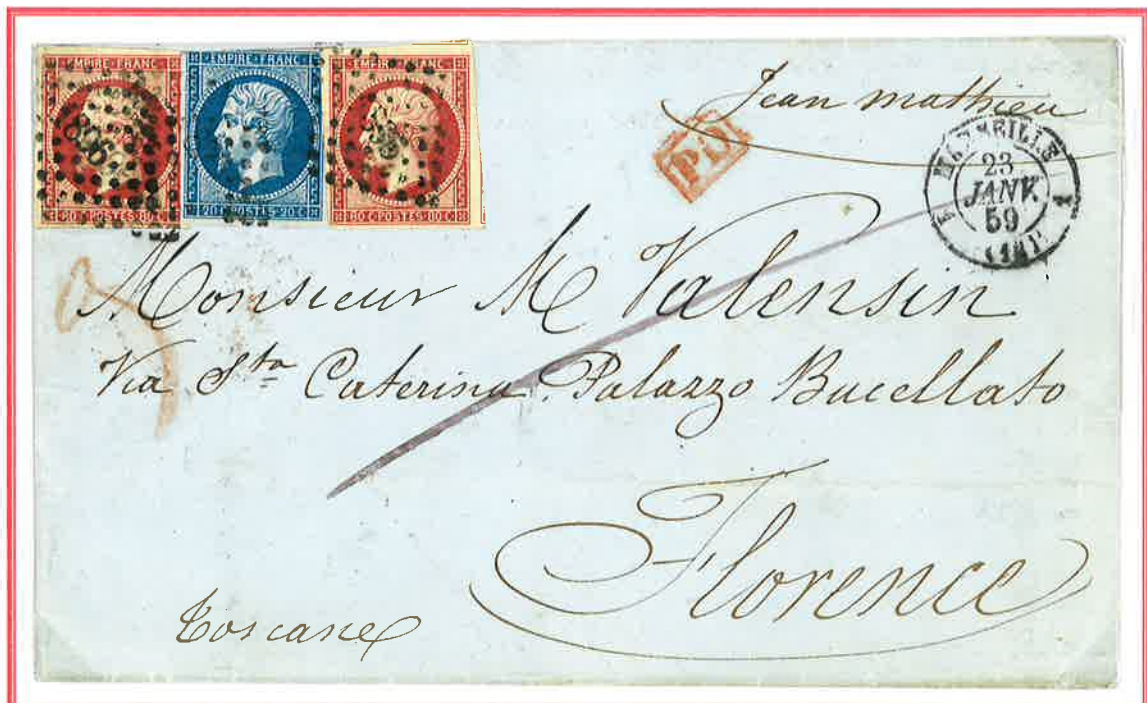 EMPIRE FRANC
80 C POSTES 80 C
EMPIRE FRANC
20 C POSTES 20 C
EMPIRE FRANC
80 C POSTES 80 C
Jean mathieu
PD
MARSEILLE
23
JANV.
59
1
Monsieur M Valensin
Via Sta Caterina Palazzo Bucellato
Florence
Toscane